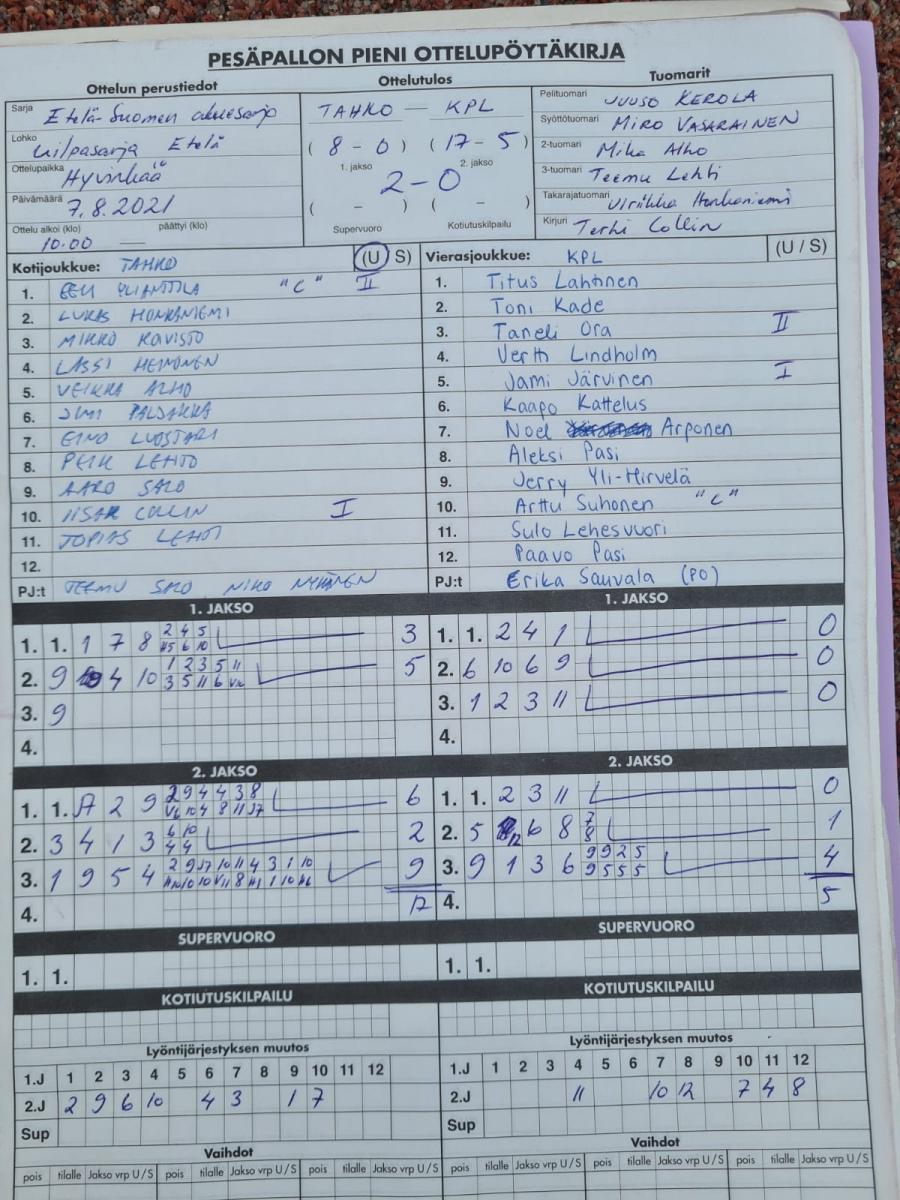 PESÄPALLON PIENI OTTELUPÖYTÄKIRJA
Ottelun perustiedot
Sarja Etelä-Suomen aluesarja
Lohko kilpasarja Etelä
Ottelupaikka Hyvinkää
Päivämäärä 7.8.2021
Ottelu alkoi (klo) päättyi (klo)
10.00 —
Ottelutulos
TAHKO — KPL
( 8 - 0 ) ( 17 - 5 )
1. jakso 2. jakso
2-0
( - ) ( - )
Supervuoro Kotiutuskilpailu
Tuomarit
Pelituomari JUUSO KEROLA
Syöttötuomari MIRO VASARAINEN
2-tuomari Mika Alho
3-tuomari Teemu Lehti
Takarajatuomari Ulriikka Honkaniemi
Kirjuri Terhi Collin
Kotijoukkue: TAHKO (U S)
1. EELI YLIANTTILA "C" II
2. LUKAS HONKANIEMI
3. MIKKO RAVISTO
4. LASSI HEINONEN
5. VEIKKA ALHO
6. JIMI PALSAKKA
7. EINO LUOSTARI
8. PEIK LEHTO
9. AARO SALO
10. IISAK COLLIN I
11. TOPIAS LEHTI
12.
PJ:t TEEMU SALO NIKO NYKÄNEN
Vierasjoukkue: KPL (U / S)
1. Titus Lahtinen
2. Toni Kade
3. Taneli Ora II
4. Vertti Lindholm
5. Jami Järvinen I
6. Kaapo Kattelus
7. Noel Arponen
8. Aleksi Pasi
9. Jerry Yli-Hirvelä
10. Arttu Suhonen "C"
11. Sulo Lehesvuori
12. Paavo Pasi
PJ:t Erika Sauvala (PO)
1. JAKSO
1. 1. 1 7 8 2 4 5 3
6 10
2. 9 4 10 1 2 3 5 11 5
3 5 11 6
3. 9
4.
1. JAKSO
1. 1. 2 4 1 0
2. 6 10 6 9 0
3. 1 2 3 11 0
4.
2. JAKSO
1. 1. 2 9 2 9 4 4 3 8 6
10 4 8 11
2. 3 4 1 3 6 10 2
4 4
3. 1 9 5 4 2 9 10 11 4 3 1 10 9
4. 17
2. JAKSO
1. 1. 2 3 11 0
2. 5 12 6 8 7 1
8
3. 9 1 3 6 9 9 2 5 4
9 5 5 5
4. 5
SUPERVUORO
1. 1.
SUPERVUORO
1. 1.
KOTIUTUSKILPAILU
KOTIUTUSKILPAILU
Lyöntijärjestyksen muutos
1.J 1 2 3 4 5 6 7 8 9 10 11 12
2.J 2 9 6 10 4 3 1 7
Sup
Lyöntijärjestyksen muutos
1.J 1 2 3 4 5 6 7 8 9 10 11 12
2.J 11 10 12 7 4 8
Sup
Vaihdot
pois tilalle Jakso vrp U / S pois tilalle Jakso vrp U / S pois tilalle Jakso vrp U / S
Vaihdot
pois tilalle Jakso vrp U / S pois tilalle Jakso vrp U / S pois tilalle Jakso vrp U / S